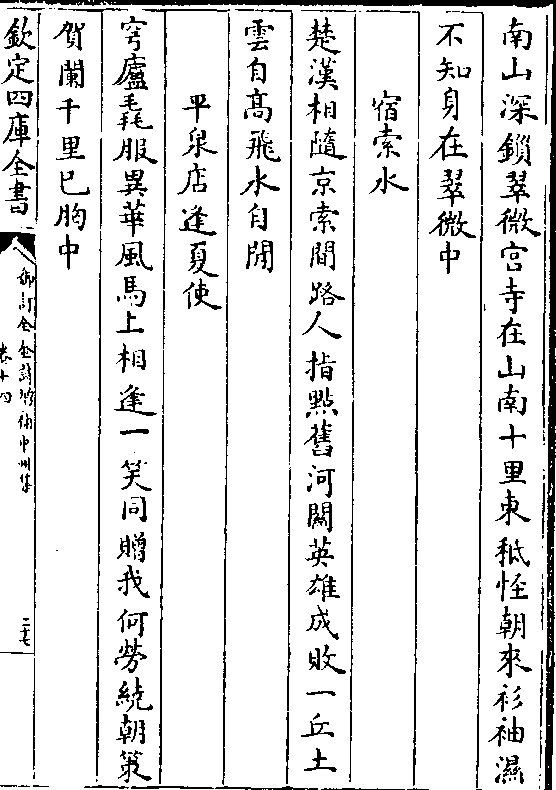 南山深鎖翠微宫寺在山南十里東秪怪朝來衫袖濕
不知身在翠微中
宿索水
楚漢相隨京索間路人指點舊河關英雄成敗一丘土
雲自髙飛水自閒
平泉店逢夏使
穹廬毳服異華風馬上相逢一笑同贈我何勞繞朝策
賀蘭千里已胸中
欽定四庫全書
御訂全金詩增補中州集
卷十四
二七